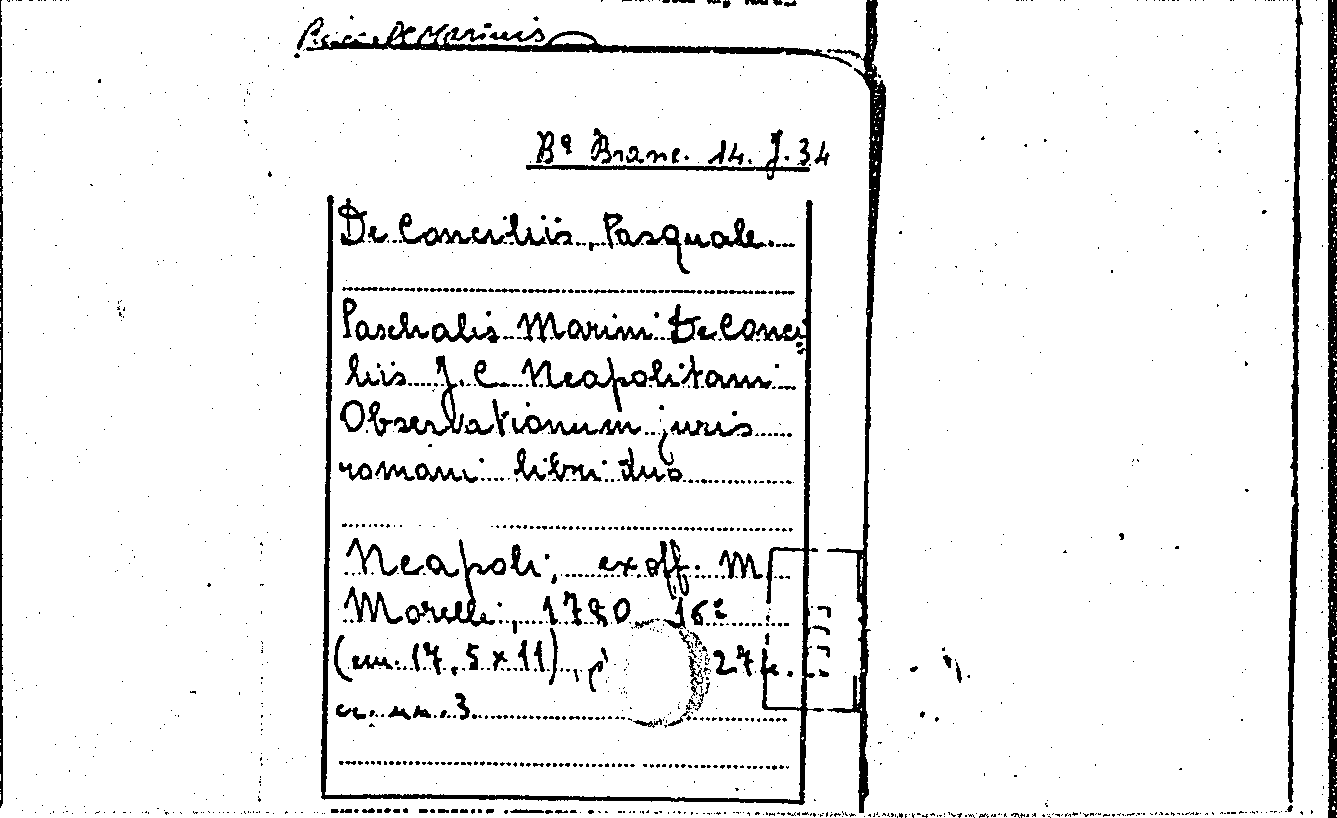 De Marinis
Bª Branc. 14. J. 34
De Conciliis, Pasquale.
Paschalis Marini De Conci
liis J. C. Neapolitani
Observationum juris
romani libri duo
Neapoli, ex off. M
Morelli, 16º
(cm. 17,5 x 11), p 274.
cc. nn. 3